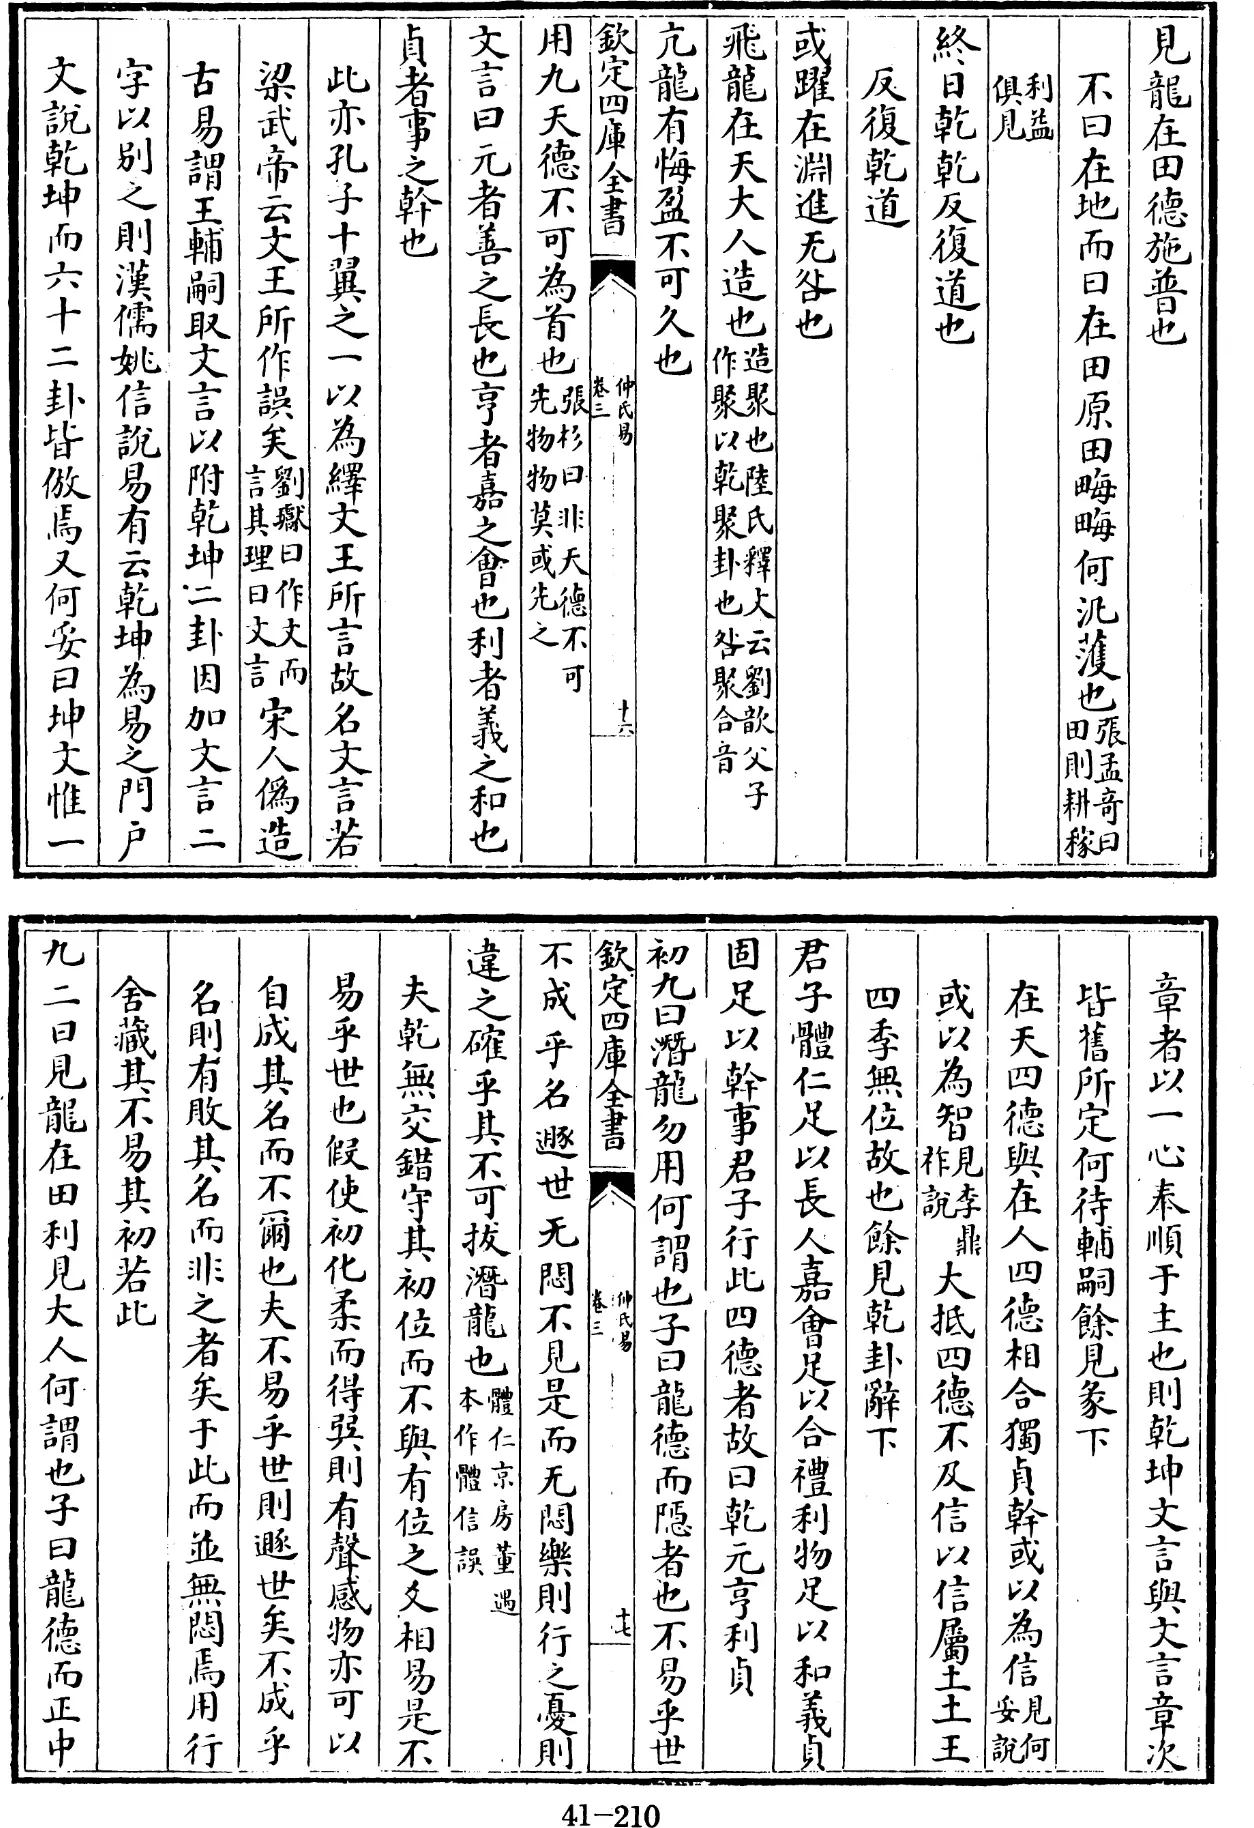 見龍在田德施普也
不曰在地而曰在田原田畮畮何氾濩也張孟奇曰田則耕稼
利益俱見
終日乾乾反復道也
反復乾道
或躍在淵進无咎也
飛龍在天大人造也造聚也陸氏釋文云劉歆父子作聚以乾聚卦也咎聚合音
亢龍有悔盈不可久也
欽定四庫全書
仲氏易
卷三
十六
用九天德不可為首也張杉曰非天德不可先物物莫或先之
文言曰元者善之長也亨者嘉之會也利者義之和也
貞者事之幹也
此亦孔子十翼之一以為繹文王所言故名文言若
梁武帝云文王所作誤矣劉瓛曰作文而言其理曰文言宋人僞造
古易謂王輔嗣取文言以附乾坤二卦因加文言二
字以別之則漢儒姚信說易有云乾坤為易之門户
文說乾坤而六十二卦皆倣焉又何妥曰坤文惟一
章者以一心奉順于主也則乾坤文言與文言章次
皆舊所定何待輔嗣餘見彖下
在天四德與在人四德相合獨貞幹或以為信見何妥說
或以為智見李鼎祚說大抵四德不及信以信屬土土王
四季無位故也餘見乾卦辭下
君子體仁足以長人嘉會足以合禮利物足以和義貞
固足以幹事君子行此四德者故曰乾元亨利貞
初九曰潛龍勿用何謂也子曰龍德而隱者也不易乎世
欽定四庫全書
仲氏易
卷三
十七
不成乎名遯世无悶不見是而无悶樂則行之憂則
違之確乎其不可拔潛龍也體仁京房董遇本作體信誤
夫乾無交錯守其初位而不與有位之爻相易是不
易乎世也假使初化柔而得巽則有聲感物亦可以
自成其名而不爾也夫不易乎世則遯世矣不成乎
名則有敗其名而非之者矣于此而並無悶焉用行
舍藏其不易其初若此
九二曰見龍在田利見大人何謂也子曰龍德而正中
41-210